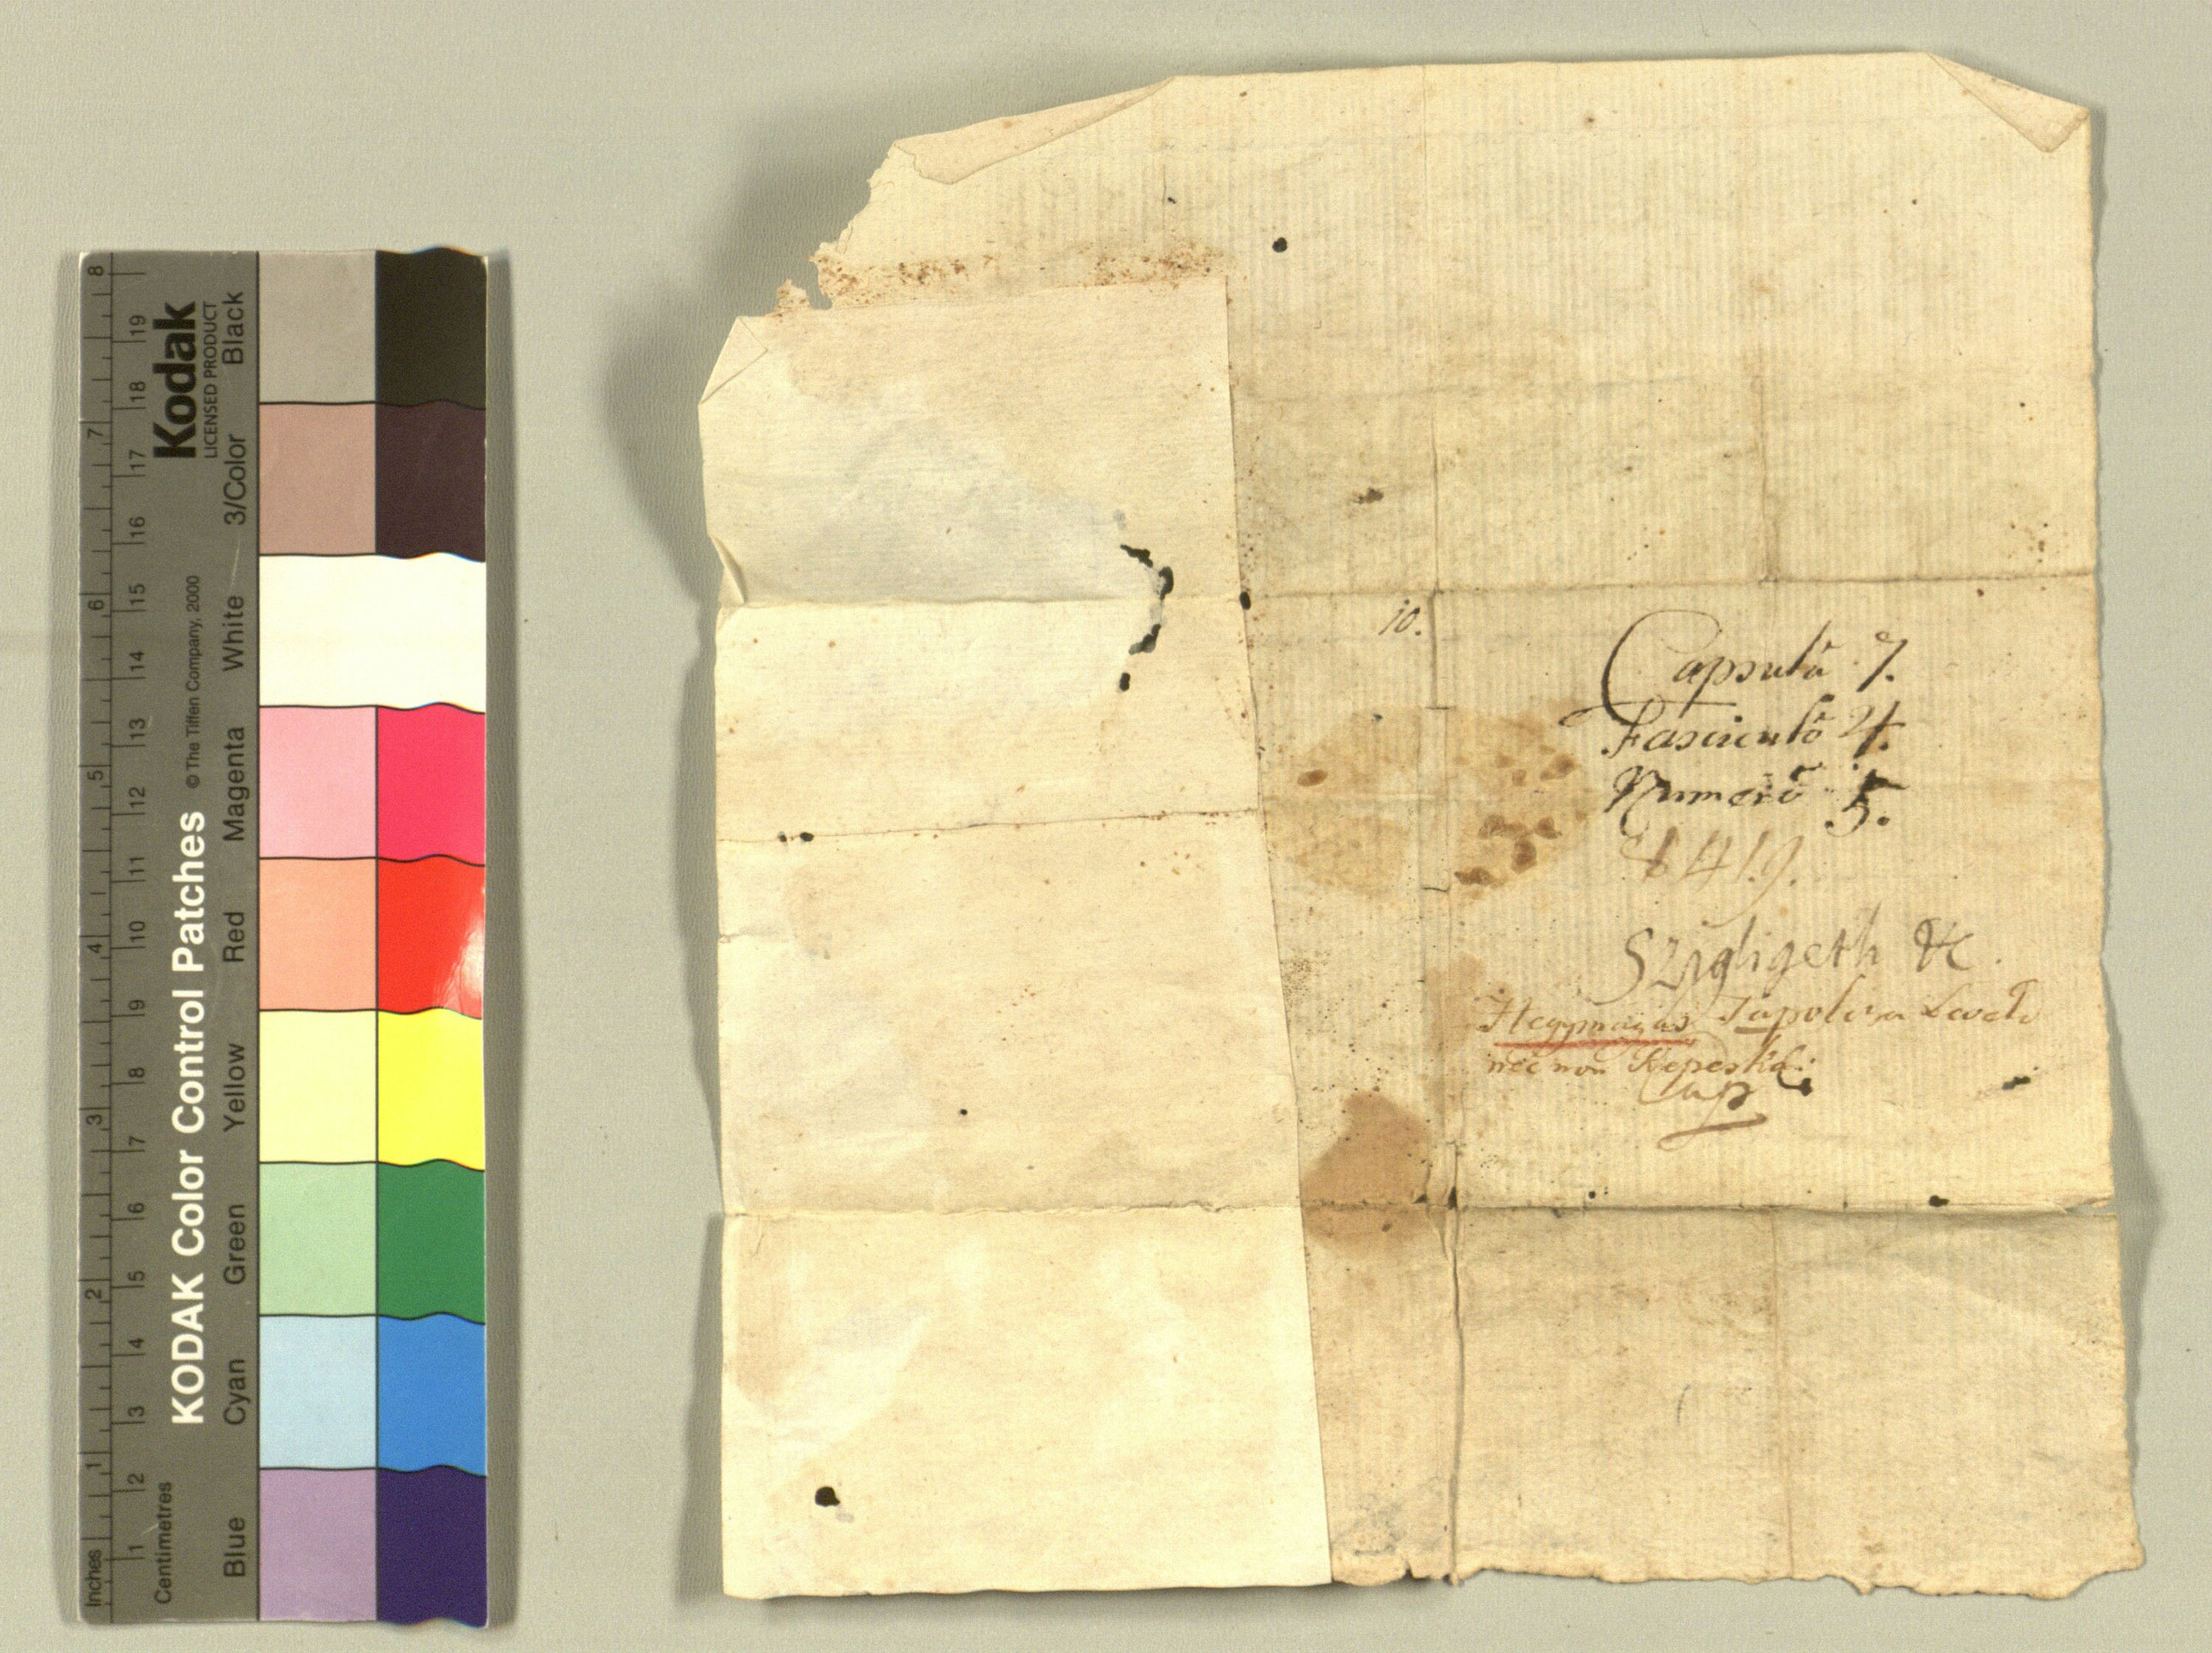 10.
Capsulâ 7.
Fasciculô 4.
Numerô 5.
1419.
Szigligeth &c.
Hegymagas Tapolcza
nec non
Cap
KODAK Color Control Patches © The Tiffen Company, 2000 Kodak
LICENSED PRODUCT
Blue Cyan Green Yellow Red Magenta White 3/Color Black
Centimetres 1 2 3 4 5 6 7 8 9 10 11 12 13 14 15 16 17 18 19
Inches 1 2 3 4 5 6 7 8